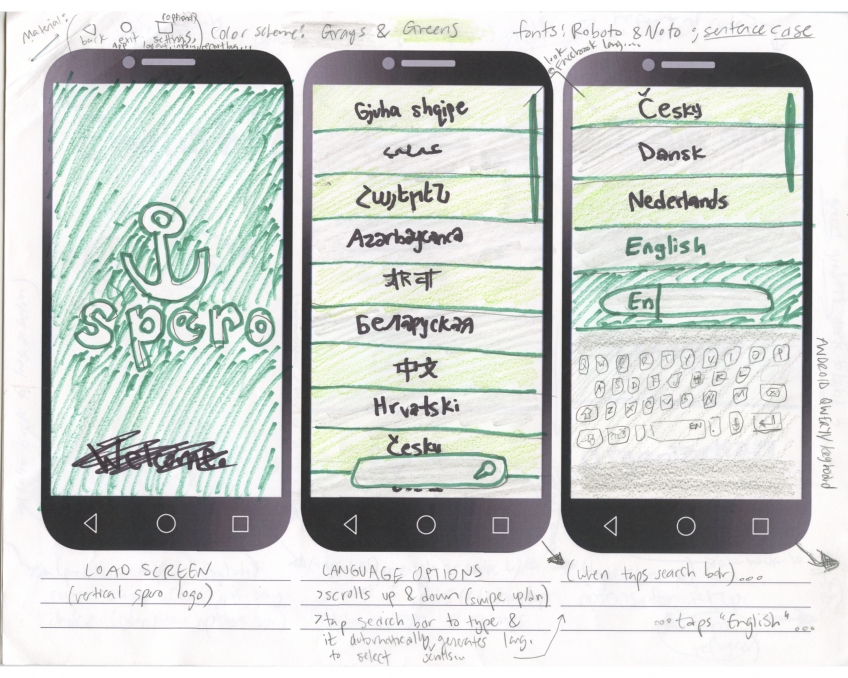 Material:
back
exit app
(optional)
settings,
Color scheme: Grays & Greens
fonts: Roboto & Noto; sentence case
look @ facebook lang....
spero
Welcome.
Gjuha shqipe
عربي
Հայերեն
Azərbaycanca
Беларуская
中文
Hrvatski
Česky
Česky
Dansk
Nederlands
English
En
Q W E R T Y U I O P
A S D F G H K L
Z X C V B N M
EN
ANDROID QWERTY keyboard
LOAD SCREEN
(vertical spero logo)
LANGUAGE OPTIONS
>scrolls up & down (swipe up/dn)
>tap search bar to type &
it automatically generates lang.
to select
(when taps search bar)...
...taps "English"...